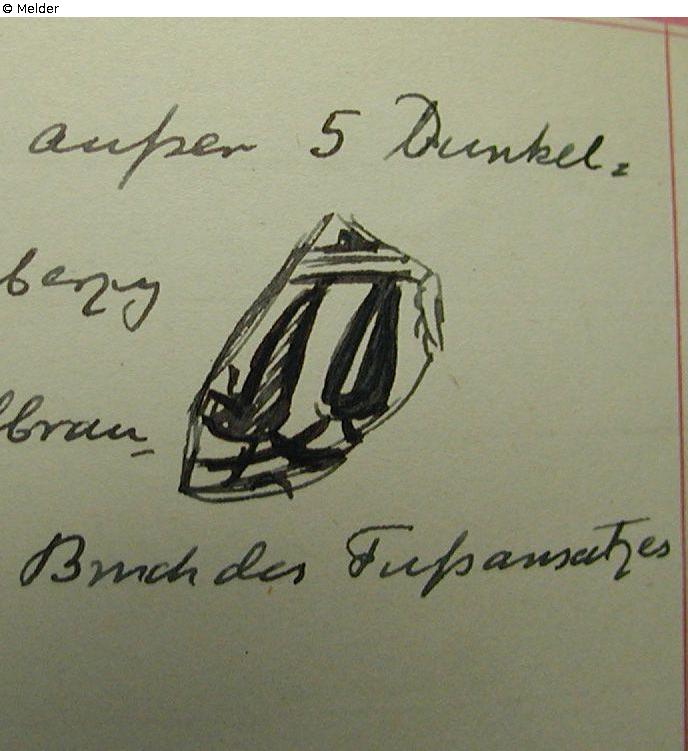 © Melder
außer 5 Dunkel=
Bruch des Fußansatzes